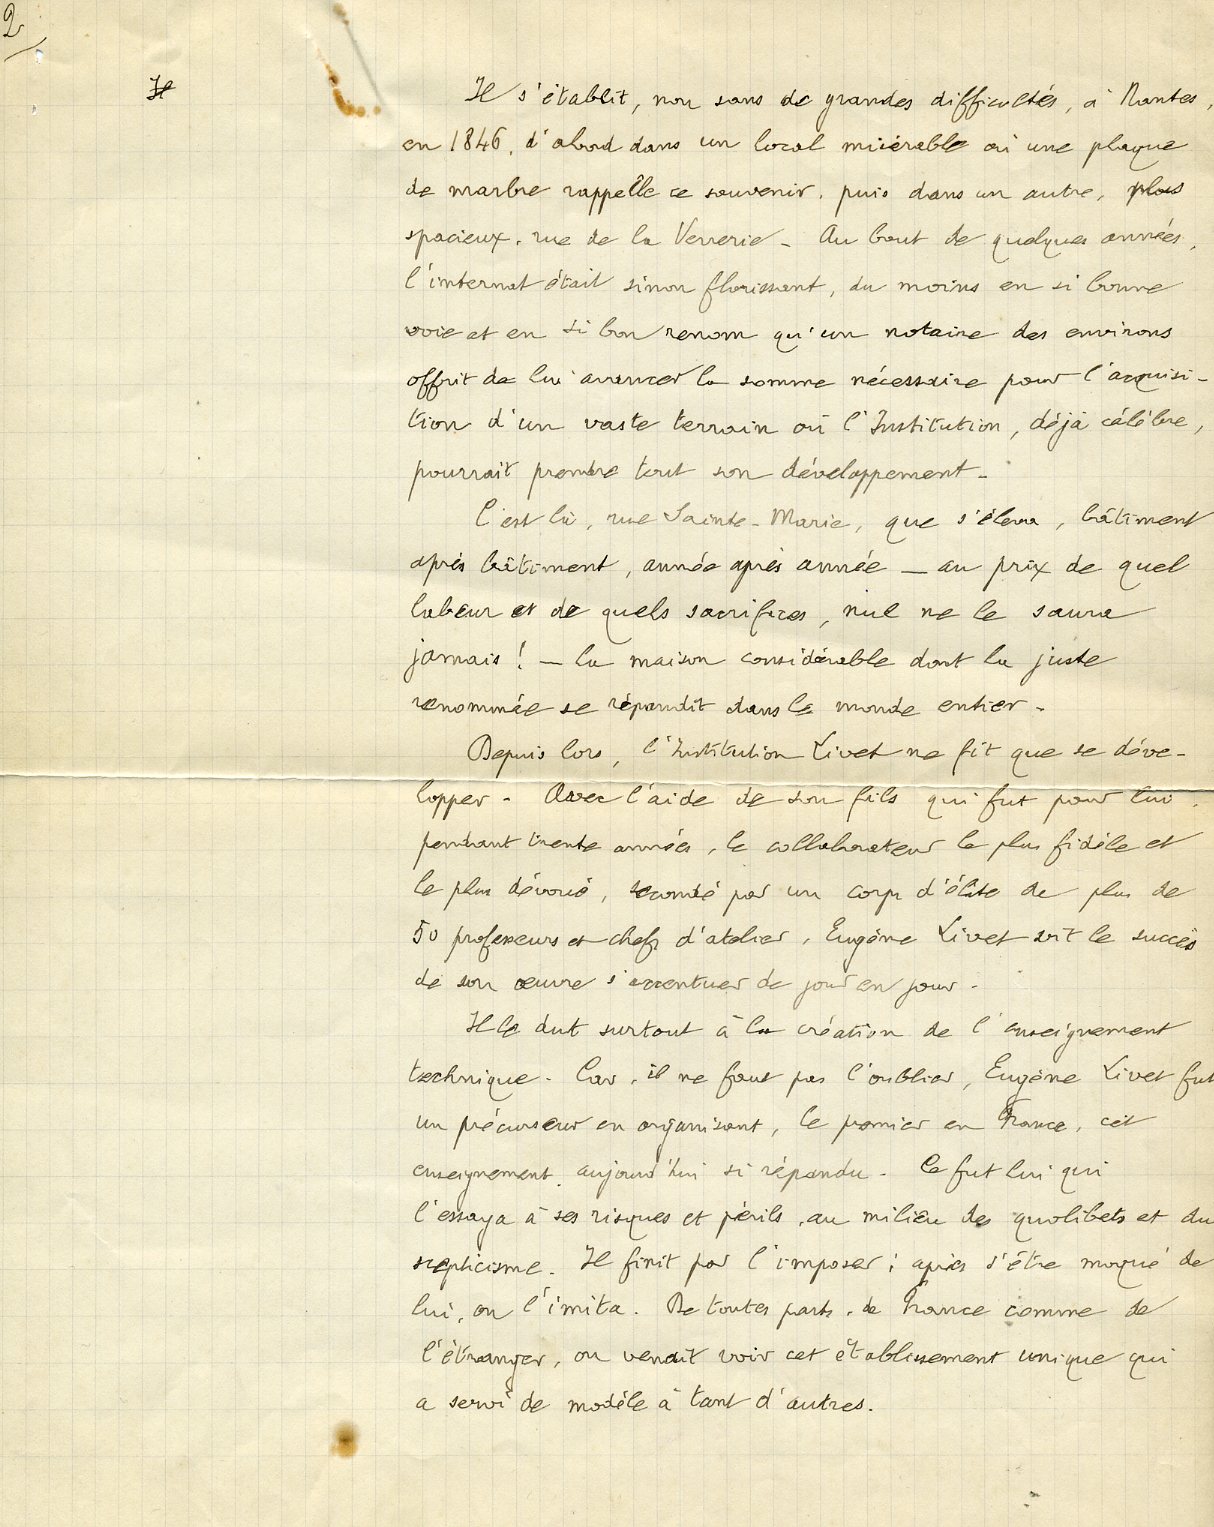 2
Il
Il s'établit, non sans de grandes difficultés, à Nantes,
en 1846, d'abord dans un local misérable où une plaque
de marbre rappelle ce souvenir, puis dans un autre, plus
spacieux, rue de la Verrerie - Au bout de quelques années,
l'internat était sinon florissant, du moins en si bonne
voie et en si bon renom qu'un notaire des environs
offrit de lui avancer la somme nécessaire pour l'acquisi-
tion d'un vaste terrain où l'Institution, déjà célèbre,
pourrait prendre tout son développement -
C'est là, rue Sainte-Marie, que s'éleva, bâtiment
après bâtiment, année après année — au prix de quel
labeur et de quels sacrifices, nul ne le saura
jamais ! — la maison considérable dont la juste
renommée se répandit dans le monde entier -
Depuis lors, l'Institution Livet ne fit que se déve-
lopper - Avec l'aide de son fils qui fut pour lui,
pendant trente années, le collaborateur le plus fidèle et
le plus dévoué, secondé par un corps d'élite de plus de
50 professeurs et chefs d'atelier, Eugène Livet vit le succès
de son œuvre s'accentuer de jour en jour -
Il le dut surtout à la création de l'enseignement
technique - Car, il ne faut pas l'oublier, Eugène Livet fut
un précurseur en organisant, le premier en France, cet
enseignement, aujourd'hui si répandu - Ce fut lui qui
l'essaya à ses risques et périls, au milieu des quolibets et du
scepticisme - Il finit par l'imposer ; après s'être moqué de
lui, on l'imita. De toutes parts, de France comme de
l'étranger, on venait voir cet établissement unique qui
a servi de modèle à tant d'autres.